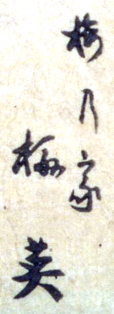 梅乃家
梅英